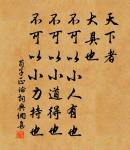 天下者
大具也
不可以小人有也
不可以小道得也
不可以小力持也
荀子正論詞典網集